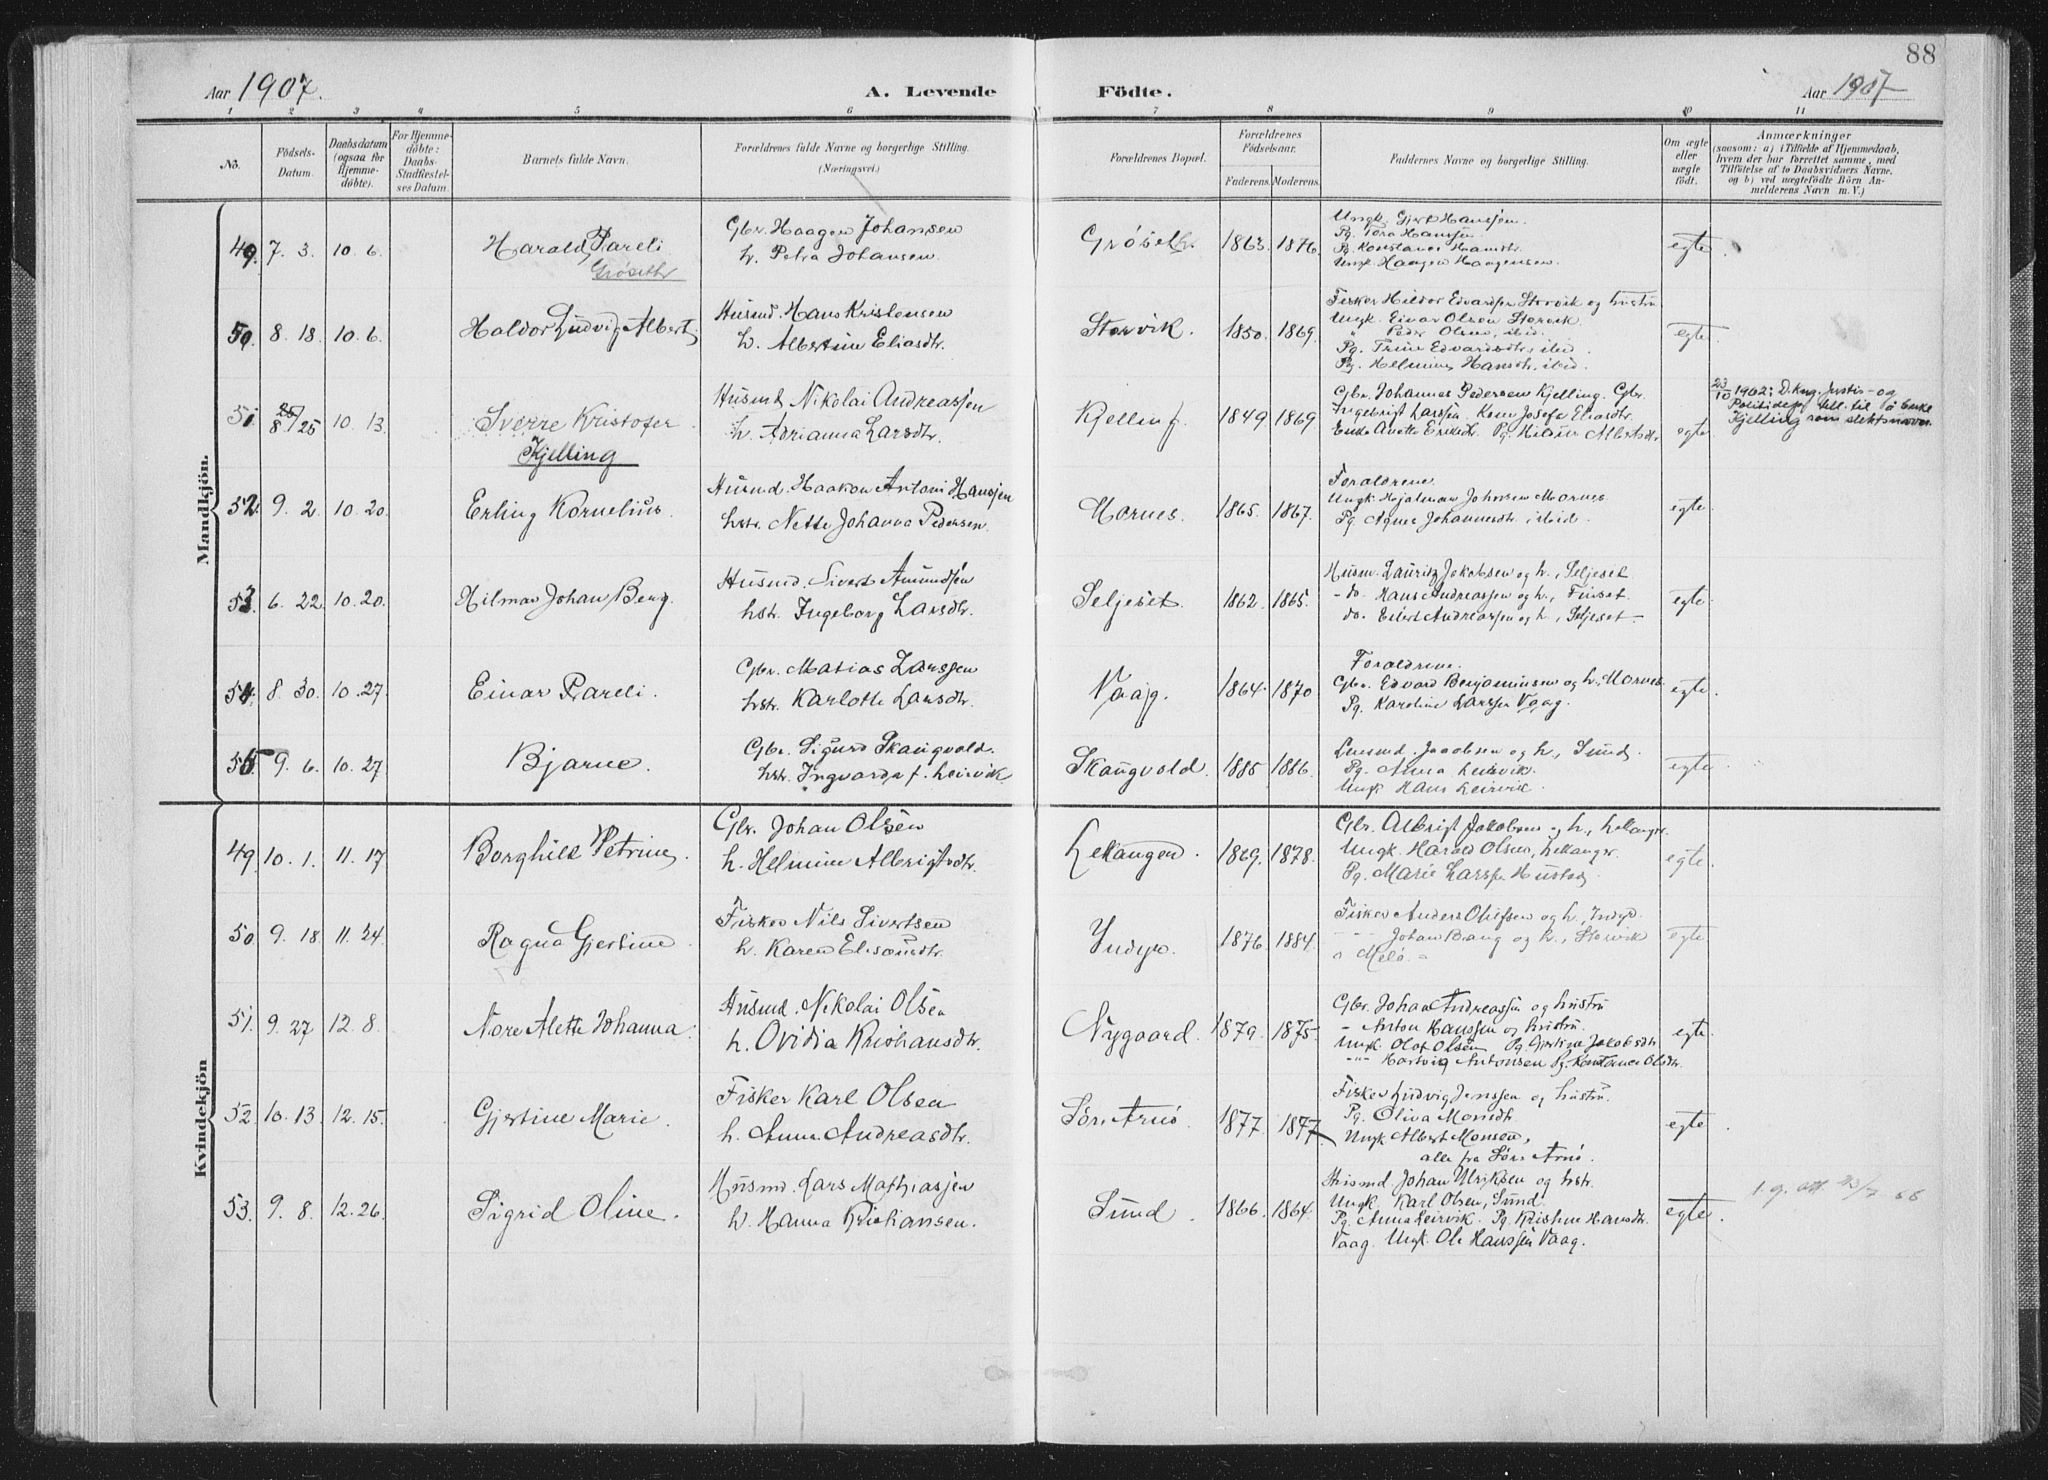 88
Aar 1907.
A. Levende
Födte.
Aar 1907
1 2 3 4 5 6 7 8 9 10 11
No.
Födsels-Datum.
Daabsdatum (ogsaa for Hjemme-döbte).
For Hjemme-döbte: Daabs-Stadfæstel-ses Datum.
Barnets fulde Navn.
Forældrenes fulde Navne og borgerlige Stilling. (Næringsvei.)
Forældrenes Bopæl.
Forældrenes Födselsaar.
Faderens. Moderens.
Faddernes Navne og borgerlige Stilling.
Om ægte eller uægte födt.
Anmærkninger
(saasom: a) i Tilfælde af Hjemmedaab, hvem der har forrettet samme, med Tilföielse af to Daabsvidners Navne, og b) ved uægtefödte Börn An-melderens Navn m. V.)
Mandkjön.
49. 7. 3. 10. 6. Harald Pareli Grøseth
Gbr. Haagen Johansen
h. Petra Johansen.
Grøseth. 1863. 1876.
Ungk. Gjert Hanssen.
Pg. Tora Hanssen
Pg. Konstance Hansdtr.
Ungk. Haagen Haagensen.
egte.
50. 8. 18. 10. 6. Haldor Ludvig Albert
Husmd. Hans Kristensen
h. Albertine Eliasdtr.
Storvik. 1850. 1869.
Fisker Hildor Edvardsen Storvik og hustru
Ungk. Einar Olsen Storvik.
" Peder Olsen, ibid.
Pg. Trine Edvardsdtr, ibid.
Pg. Helmine Hansdtr, ibid.
egte.
51. 8/25 10. 13. Sverre Kristofer
Kjelling
Husmd Nikolai Andreassen
h. Adrianna Larsdtr.
Kjelling 1849 1869
Gbr. Johannes Pedersen Kjelling. Gbr.
Ingebrigt Larssen. Kone Josefa Eliasdtr.
Enke Anette Eriksdtr. Pg. Hilda Albertsdtr
egte.
23/10 1962: D. kng. Justis- og
Politidep. till. til å bruke
Kjelling som slektsnavn
52. 9. 2. 10. 20. Erling Kornelius.
Husmd. Haakon Antoni Hanssen
hstr. Nette Johanna Pedersen.
Mornes. 1865. 1867.
Foraldrene.
Ungk. Hjalmar Johnsen Mornes.
Pg Agnes Johannesdtr. ibid.
egte.
53. 6. 22. 10. 20. Hilmar Johan Berg.
Husmd. Sivert Amundsen
hstr. Ingeborg Larsdtr.
Seljeset. 1862. 1865.
Husm. Lauritz Jakobsen og h., Seljeset
- do. Hans Andreassen og h., Finset
do. Edert Andreassen og h., Seljeset -
egte.
54. 8. 30. 10. 27. Einar Pareli.
Gbr. Matias Larssen
hstr. Karlotte Larsdtr.
Vaag. 1864. 1870
Foraldrene.
Gbr. Edvard Benjaminsen og h., Mornes.
Pg. Karoline Larssen Vaag.
egte.
55. 9. 6. 10. 27 Bjarne.
Gbr. Sigurd Skaugvold.
hstr. Ingvarda f. Leirvik
Skaugvold. 1885 1886.
Jacobsen og h., Sund,
Pg. Anna Leirvik.
Ungk Hans Leirvik.
egte.
Kvindekjön
49. 10. 1. 11. 17. Borghild Petrine.
Gbr. Johan Olsen
h. Helmine Albrigtsdtr.
Lekangen. 1869. 1878.
Gbr. Albrigt Jakobsen og h., Lekanger.
Ungk. Harald Olsen, Lekanger.
Pg. Marie Larssen Hustad.
egte
50. 9. 18. 11. 24. Ragna Gjertine.
Fisker Nils Sivertsen
h. Karen Elisæusdtr.
Indyr. 1876. 1884.
Fisker Anders Olufsen og h., Indyr.
" Johan Bang og h., Storvik
Melø.
egte.
51. 9. 27 12. 8. Nore Alette Johanna.
Husmd. Nikolai Olsen
h. Ovidia Kristiansdtr.
Nygaard. 1879. 1875.
Gbr. Johan Andreassen og hustru
- Anton Hanssen og hustru.
Ungk. Olaf Olsen Pg. Gjertine Jakobsdtr
-"- Hartvig Antonsen Pg. Konstance Olsdtr.
egte.
52. 10. 13. 12. 15. Gjertine Marie.
Fisker Karl Olsen
h. Anna Andreasdtr.
Sør. Arnø. 1877. 1877
Fisker Ludvig Jenssen og hustru.
Pg. Oliva Monsdtr.
Ungk Albert Monsen,
alle fra Sørs Arnø.
egte.
53. 9. 8. 12. 26. Sigrid Oline.
Husmd. Lars Mathiassen
h. Hanna Kristiansen.
Sund. 1866. 1864.
Husmd Johan Ulriksen og hstr.
Ungk. Karl Olsen, Sund.
Pg. Anna Leirvik. Pg. Kristine Hansdtr.
Vaag. Ungk. Ole Hanssen Vaag.
egte.